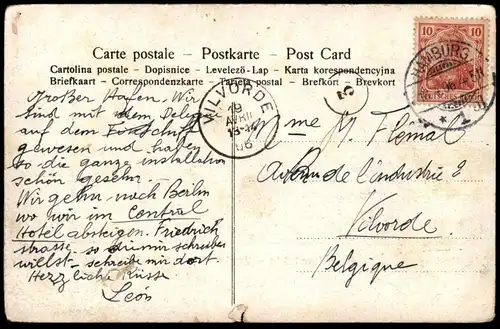 Carte postale – Postkarte – Post Card
Cartolina postale - Dopisnice - Levelező-Lap - Karta korespondencyjna
Briefkaart - Correspondenzkarte - Tarjeta postal - Brefkort - Brevkort
Großer Hafen. Wir
sind mit dem
auf dem
gewesen und haben
so die ganze installation
schön gesehn.
Wir gehn nach Berlin
wo wir im Central
Hotel absteigen. Friedrich
strasse. so du mir schreiben
willst - schreibe mir dort.
Herzliche Küsse
León
VILVORDE
19
AVRIL
06
5
HAMBURG
1
10
DEUTSCHES REICH
Mme M. Flemal
Avenue de l'industrie 2
Vilvorde
Belgique